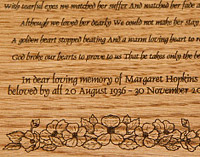 With tearful eyes we watched her suffer And watched her fade
Although we loved her dearly We could not make her stay
A golden heart stopped beating And a warm loving heart to re
God broke our hearts to prove to us That he takes only the be
In dear loving memory of Margaret Hopkins
beloved by all 20 August 1936 ~ 30 November 20